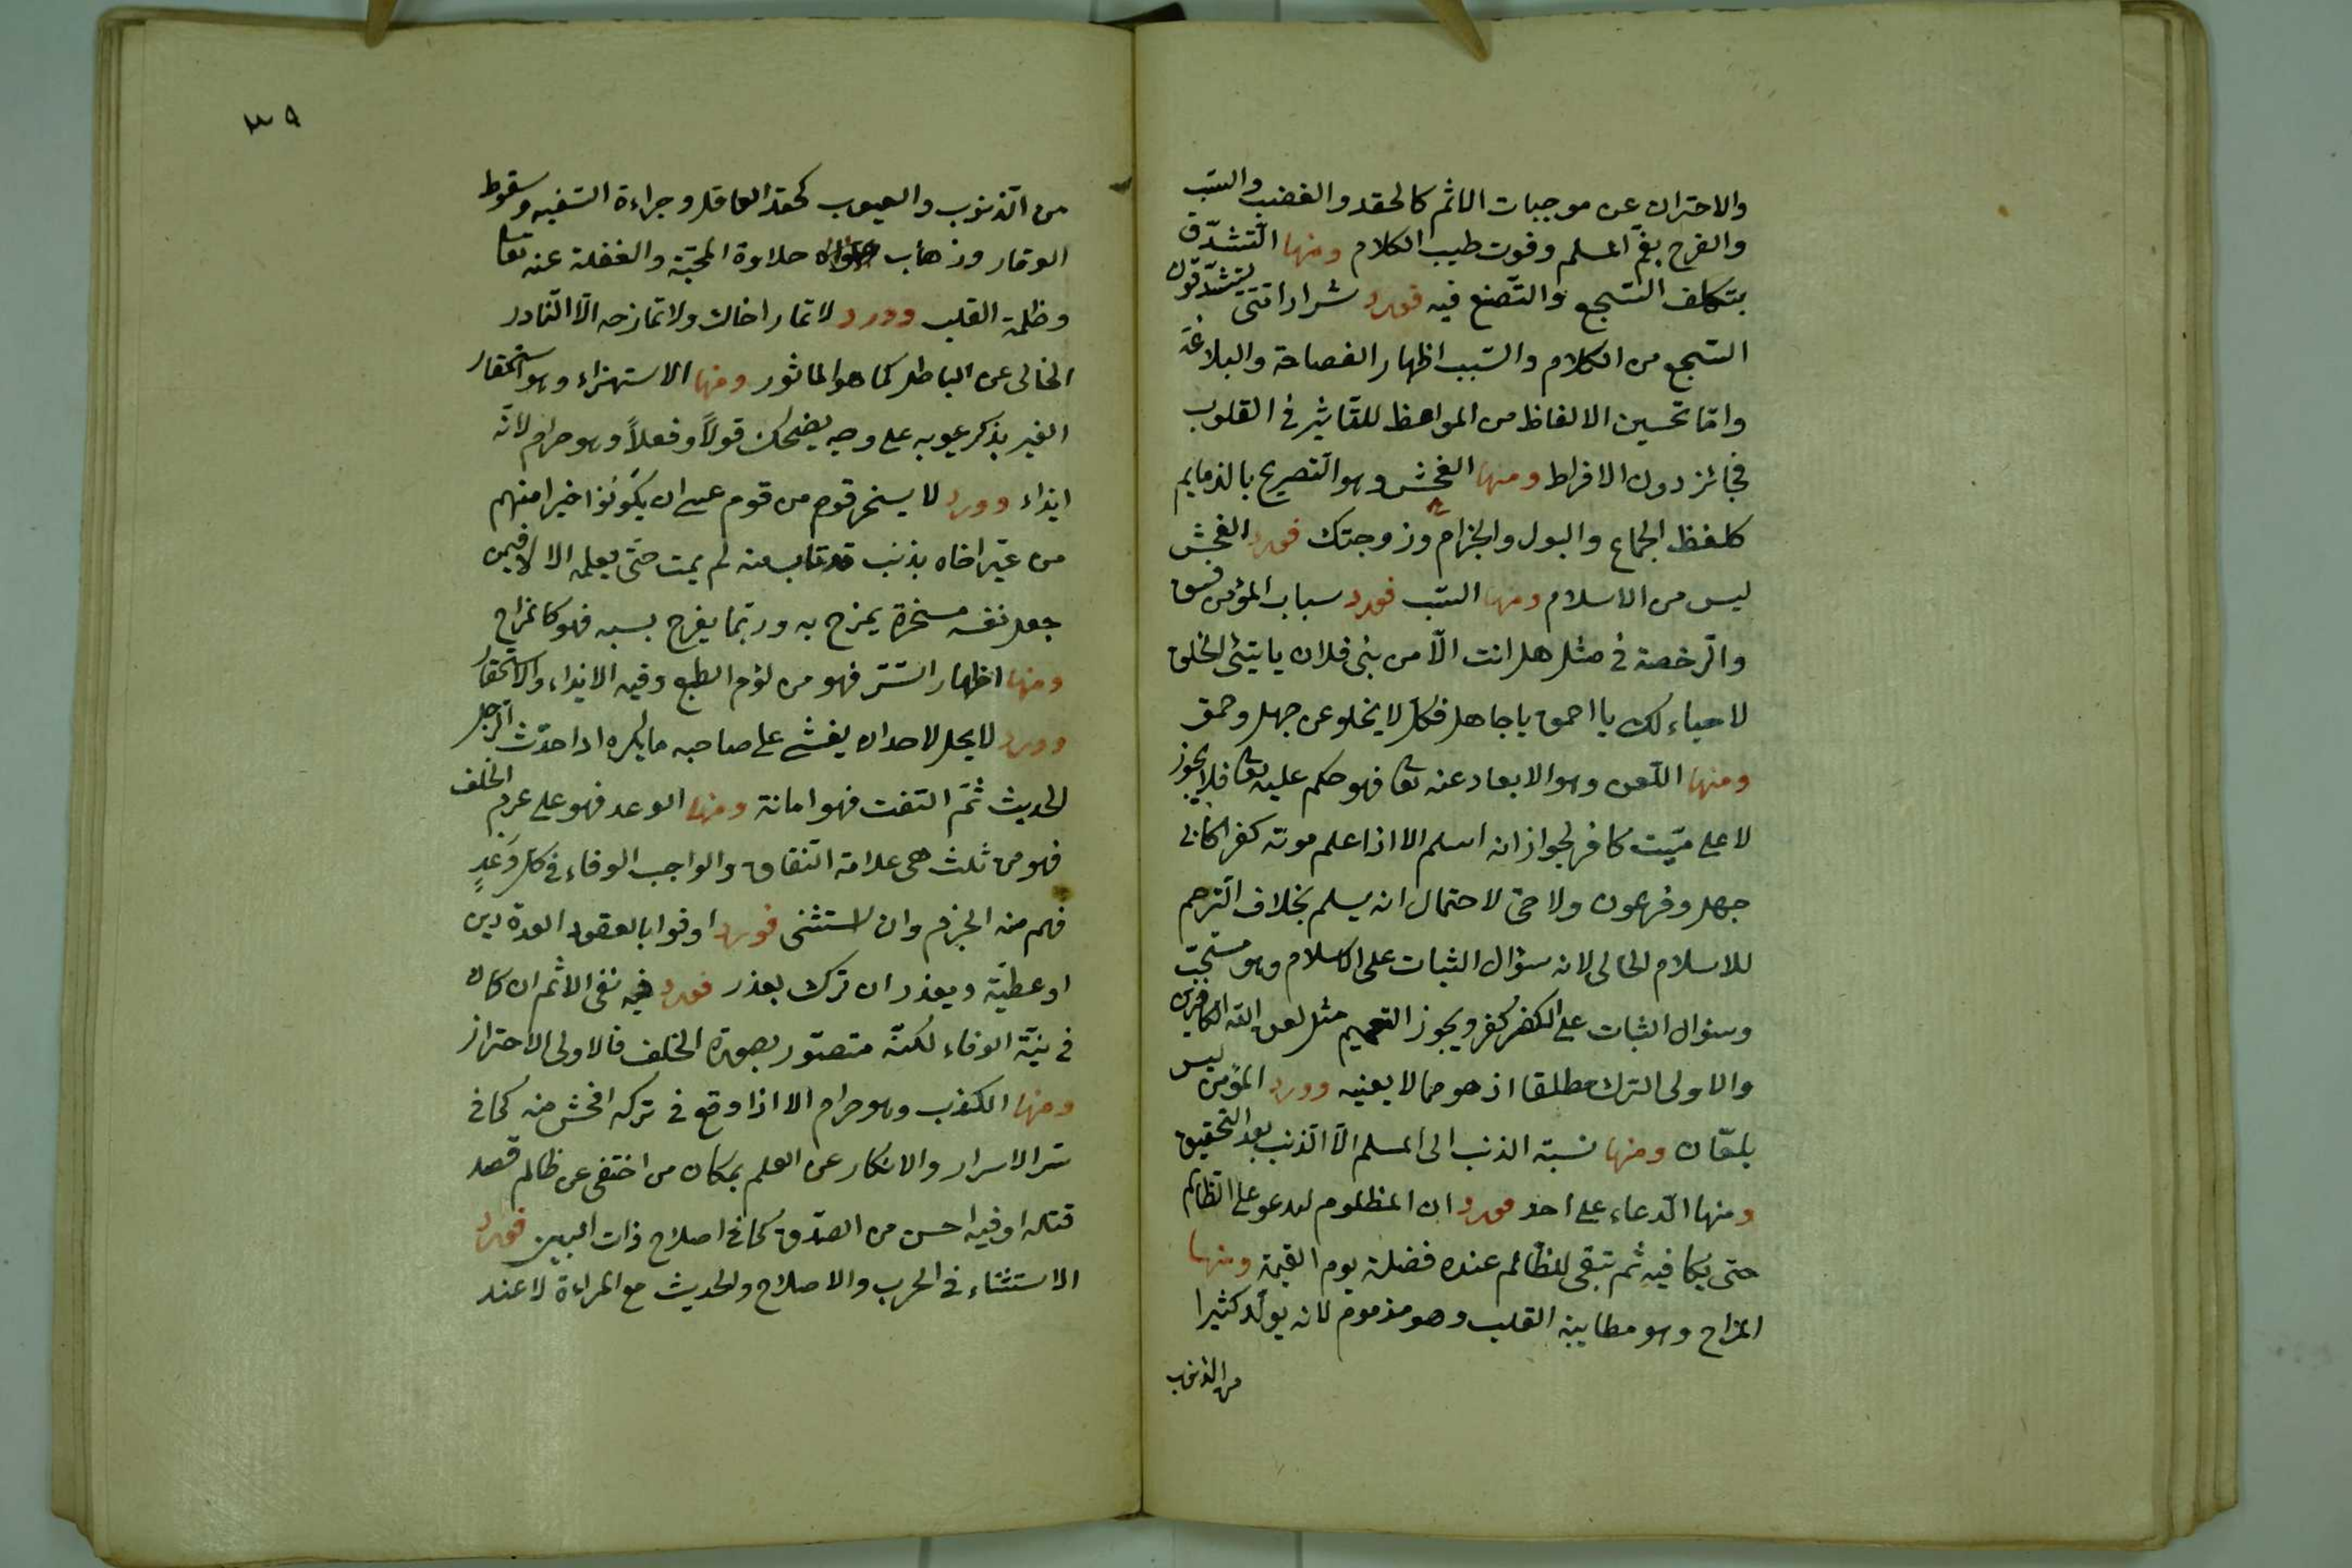 والاحتراز عن موجبات الاثم كالحقد والغضب والسّب
والفرح بغمّ المسلم وفوت طيب الكلام ومنها التّشدّق
بتكلف السّجع والتّصنع فيه فورد شرار امّتى يتشدّقون
السّجع من الكلام والسّبب اظهار الفصاحة والبلاغة
وامّا تحسين الالفاظ من المواعظ للتّاثير فى القلوب
فجائز دون الافراط ومنها الفحش وهو التصريح بالذمايم
كلفظ الجماع والبول والجزام وزوجتك فورد الفحش
ليس من الاسلام ومنها السّب فورد سباب المؤمن فسق
والرّخصة فى مثل هل انت الّا من بنى فلان يا سيّئ الخلق
لا حياء لك يا احمق يا جاهل فكلّ لا يخلو عن جهل وحمق
ومنها اللّعن وهو الابعاد عنه تعا فهو حكم عليه تعا فلا يجوز
لا على ميّت كافر لجواز انه اسلم الا اذا اعلم موته كفرا كابى
جهل وفرعون ولا حىّ لاحتمال انه يسلم بخلاف التّرحم
للاسلام الحالى لانه سؤال الثبات على الاسلام وهو مستحبّ
وسؤال الثبات على الكفر كفر ويجوز التعميم مثل لعن اللّه الكافرين
والاولى الترك مطلقا اذ هو مما لا يعنيه وورد المؤمن ليس
بلعّان ومنها نسبة الذنب الى المسلم الّا الّذنب بعد التحقيق
ومنها الدّعاء على احد فورد ان المظلوم ليدعو على الظالم
حتى يكافيه ثم تبقى للظالم عنده فضلة يوم القيمة ومنها
المزاح وهو مطايبة القلب وهو مذموم لانه يولّد كثيرا
من الذنوب
٣٩
من الّذنوب والعيوب كحقد العاقل وجراءة السّفيه وسقوط
الوقار وذهاب حلاوة المحبّة والغفلة عنه تعا
وظلمة القلب وورد لا تمار اخاك ولا تمازحه الّا النّادر
الخالى عن الباطل كما هو الماثور ومنها الاستهزاء وهو استحقار
الغير بذكر عيوبه على وجه يضحك قولاً وفعلاً وهو حرام لانّه
ايذاء وورد لا يسخر قوم من قوم عسى ان يكونوا خيرا منهم
من عيّر اخاه بذنب قد تاب منه لم يمت حتّى يعلمه الا لا فيمن
جعل نفسه مسخرة يمزح به وربّما يفرح بسبه فهو كالمزاح
ومنها اظهار السّتر فهو من لؤم الطبع وفيه الايذاء والاستحقار
وورد لا يحل لاحد ان يفشى على صاحبه ما يكره اذا حدّث الرّجل
الحديث ثمّ التفت فهو امانة ومنها الوعد فهو على عزم الخلف
فهو من ثلث هى علامة النّفاق والواجب الوفاء فى كلّ وَعدٍ
فهم منه الجزم وان استثنى فورد اوفوا بالعقود العدة دين
او عطيّة ويعذر ان ترك بعذر فورد فيه نفى الاثم ان كان
فى نيّة الوفاء لكنّه متصوّر بصورة الخلف فالاولى الاحتراز
ومنها الكذب وهو حرام الا اذا وقع فى تركه افحش منه كما فى
ستر الاسرار والانكار عن العلم بمكان من اختفى عن ظالم قصد
قتله او فيه احسن من الصّدق كما فى اصلاح ذات البين فورد
الاستثناء فى الحرب والاصلاح والحديث مع المراءة لا عند